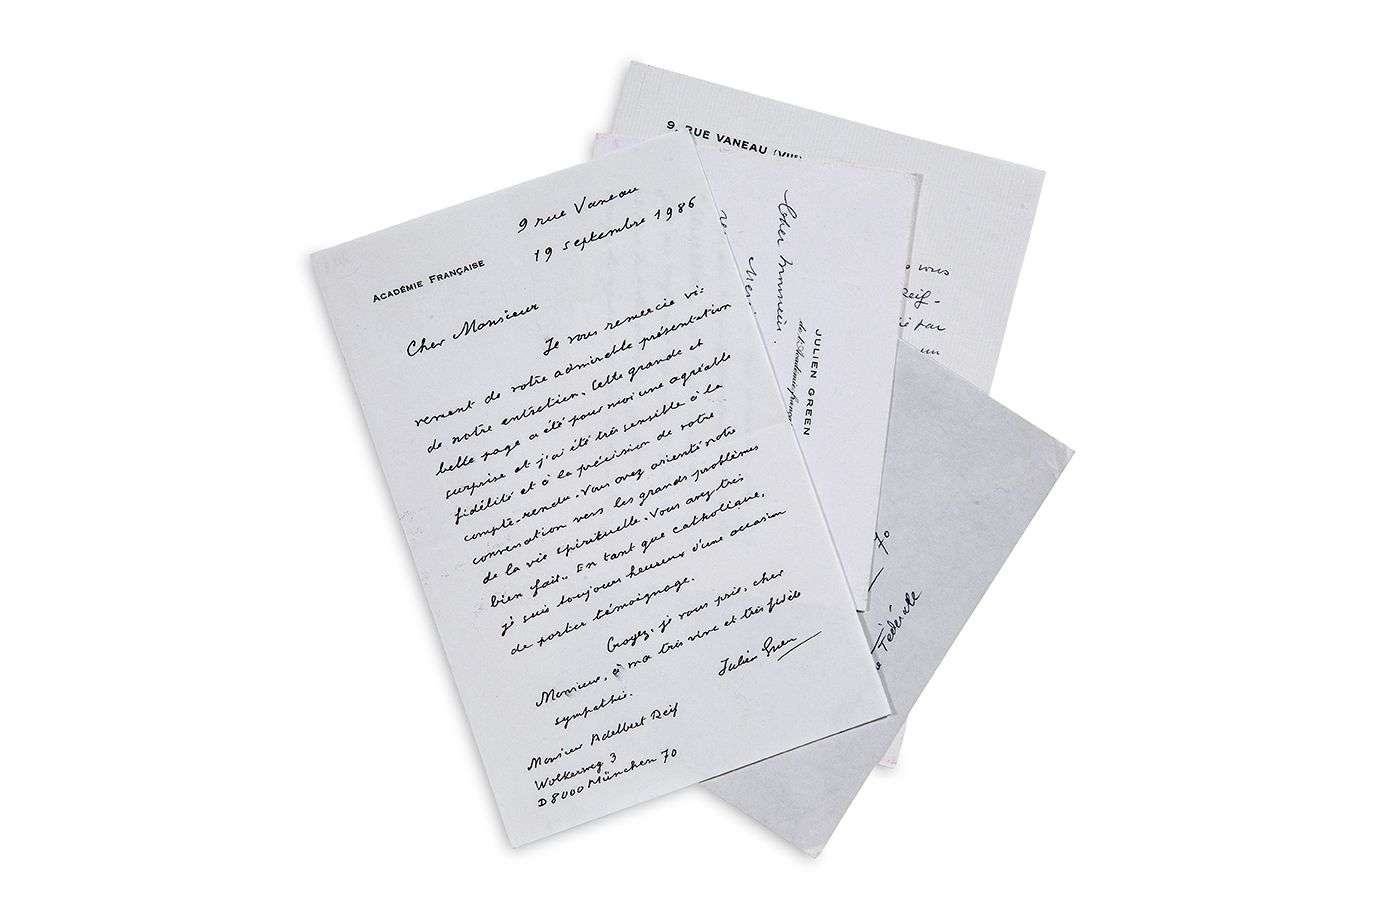 9 rue Vaneau
19 septembre 1986
ACADÉMIE FRANÇAISE
Cher Monsieur
Je vous remercie vi-
vement de votre admirable présentation
de notre entretien. Cette grande et
belle page a été pour moi une agréable
surprise et j'ai été très sensible à la
fidélité et à la précision de votre
compte-rendu. Vous avez orienté notre
conversation vers les grands problèmes
de la vie spirituelle. Vous avez très
bien fait.. En tant que catholique,
je suis toujours heureux d'une occasion
de porter témoignage.
Croyez, je vous prie, cher
Monsieur, à ma très vive et très fidèle
sympathie.
Julien Green
Monsieur Adelbert Reif
Wolkerweg 3
D 8000 München 70
9, RUE VANEAU (VIIe)
vous
Reif-
par
un
Cher Monsieur,
JULIEN GREEN
de l'Académie française
70
Fédérale